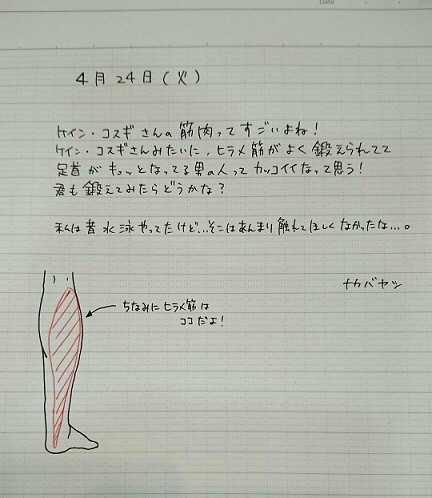 4月24日(火)
ケイン・コスギさんの筋肉ってすごいよね!
ケイン・コスギさんみたいに、ヒラメ筋がよく鍛えられてて
足首がキュッとなってる男の人ってカッコイイなって思う!
君も鍛えてみたらどうかな?
私は昔水泳やってたけど…そこはあんまり触れてほしくなかったな…。
ナカバヤシ
ちなみにヒラメ筋は
ココだよ!